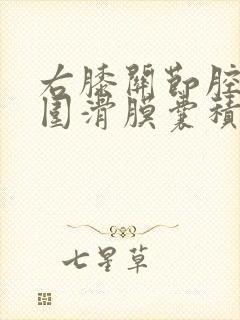 右膝關節腔
圍滑膜囊積
七星草